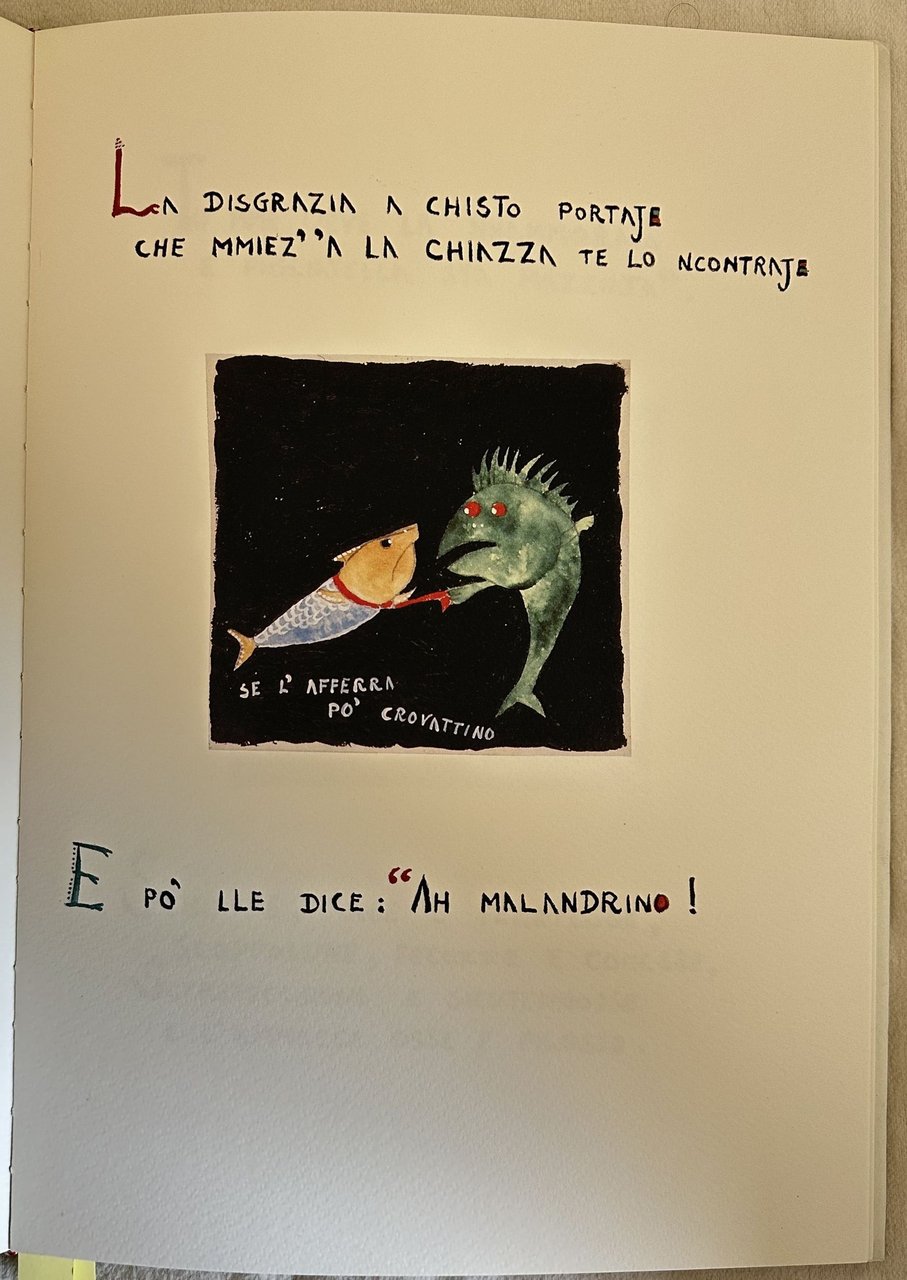 LA DISGRAZIA A CHISTO PORTAJE
CHE MMIEZ’ ’A LA CHIAZZA TE LO NCONTRAJE
SE L’ AFFERRA
PO’ CROVATTINO
E PO’ LLE DICE: “AH MALANDRINO!